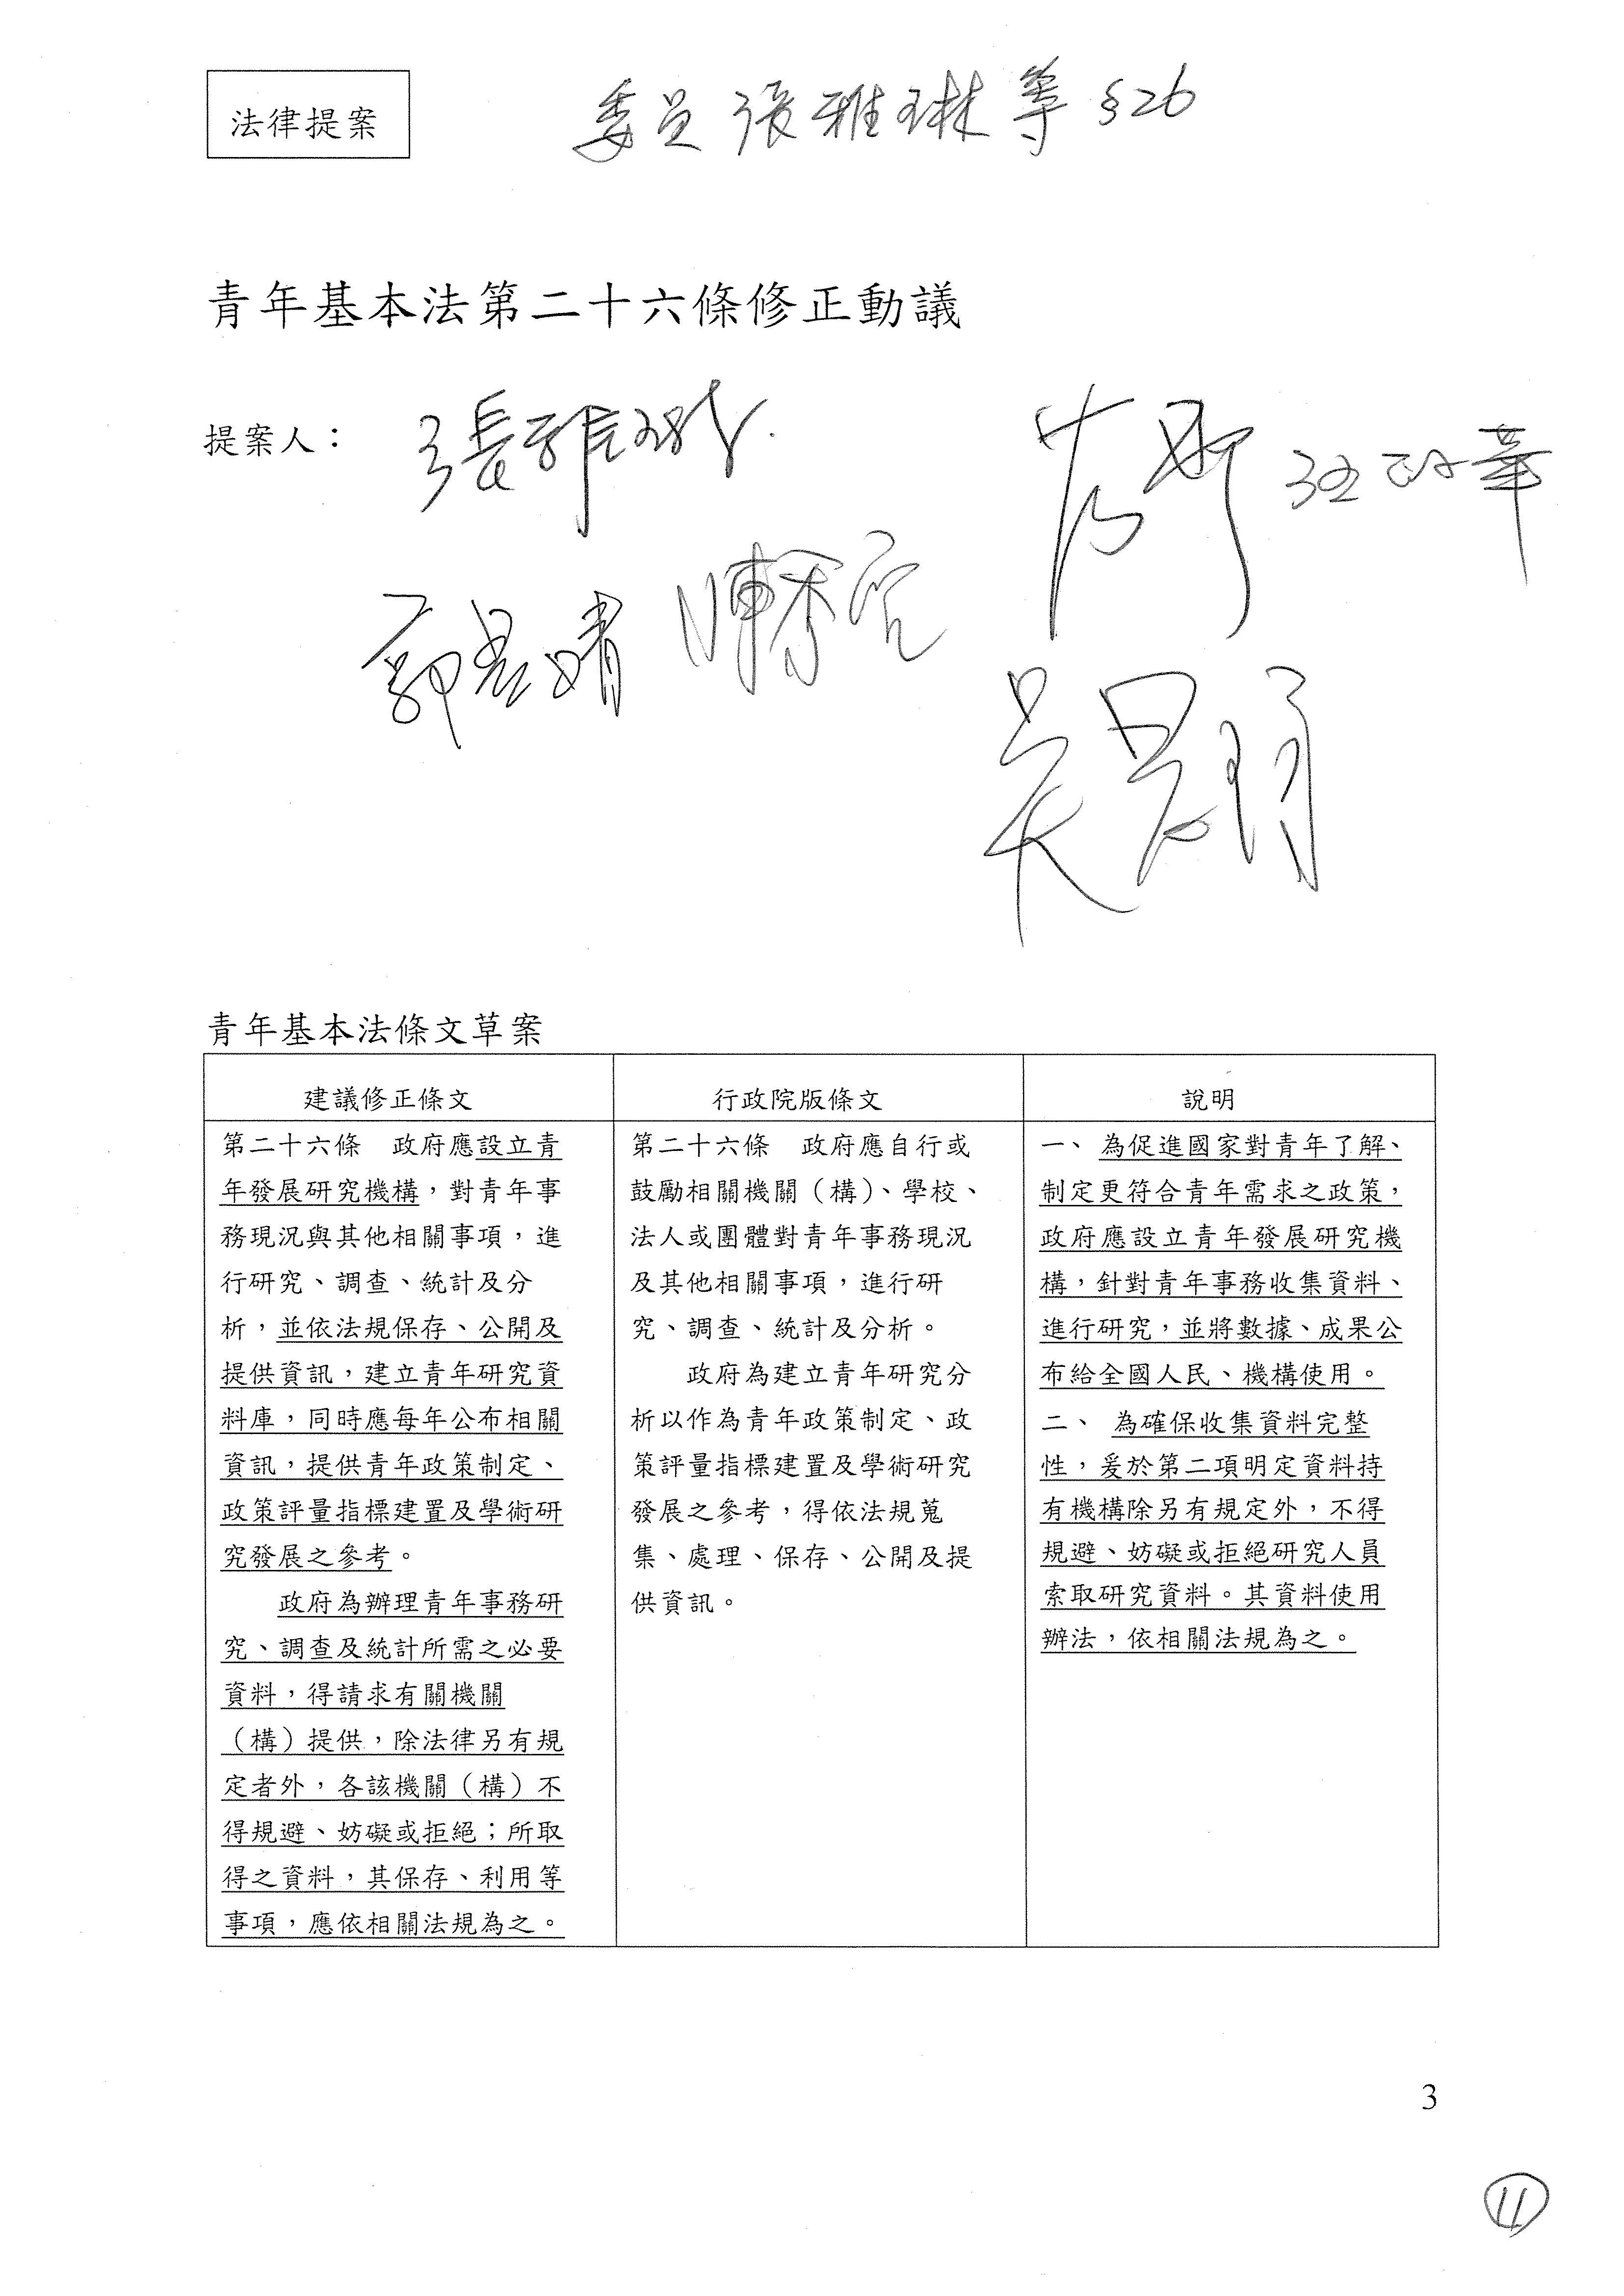 法律提案
委員張雅琳等 §26
青年基本法第二十六條修正動議
提案人：
張雅琳
郭昱晴
陳秀寳
吳思瑤
青年基本法條文草案
建議修正條文
第二十六條　政府應設立青
年發展研究機構，對青年事
務現況與其他相關事項，進
行研究、調查、統計及分
析，並依法規保存、公開及
提供資訊，建立青年研究資
料庫，同時應每年公布相關
資訊，提供青年政策制定、
政策評量指標建置及學術研
究發展之參考。
政府為辦理青年事務研
究、調查及統計所需之必要
資料，得請求有關機關
（構）提供，除法律另有規
定者外，各該機關（構）不
得規避、妨礙或拒絕；所取
得之資料，其保存、利用等
事項，應依相關法規為之。
行政院版條文
第二十六條　政府應自行或
鼓勵相關機關（構）、學校、
法人或團體對青年事務現況
及其他相關事項，進行研
究、調查、統計及分析。
政府為建立青年研究分
析以作為青年政策制定、政
策評量指標建置及學術研究
發展之參考，得依法規蒐
集、處理、保存、公開及提
供資訊。
說明
一、為促進國家對青年了解、
制定更符合青年需求之政策，
政府應設立青年發展研究機
構，針對青年事務收集資料、
進行研究，並將數據、成果公
布給全國人民、機構使用。
二、為確保收集資料完整
性，爰於第二項明定資料持
有機構除另有規定外，不得
規避、妨礙或拒絕研究人員
索取研究資料。其資料使用
辦法，依相關法規為之。
3
11